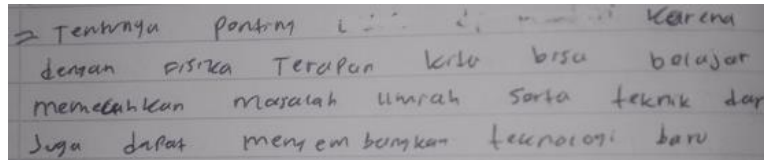 => Tentunya penting karena
dengan Fisika Terapan kita bisa belajar
memecahkan masalah serta teknik dan
Juga dapat mengembangkan teknologi baru